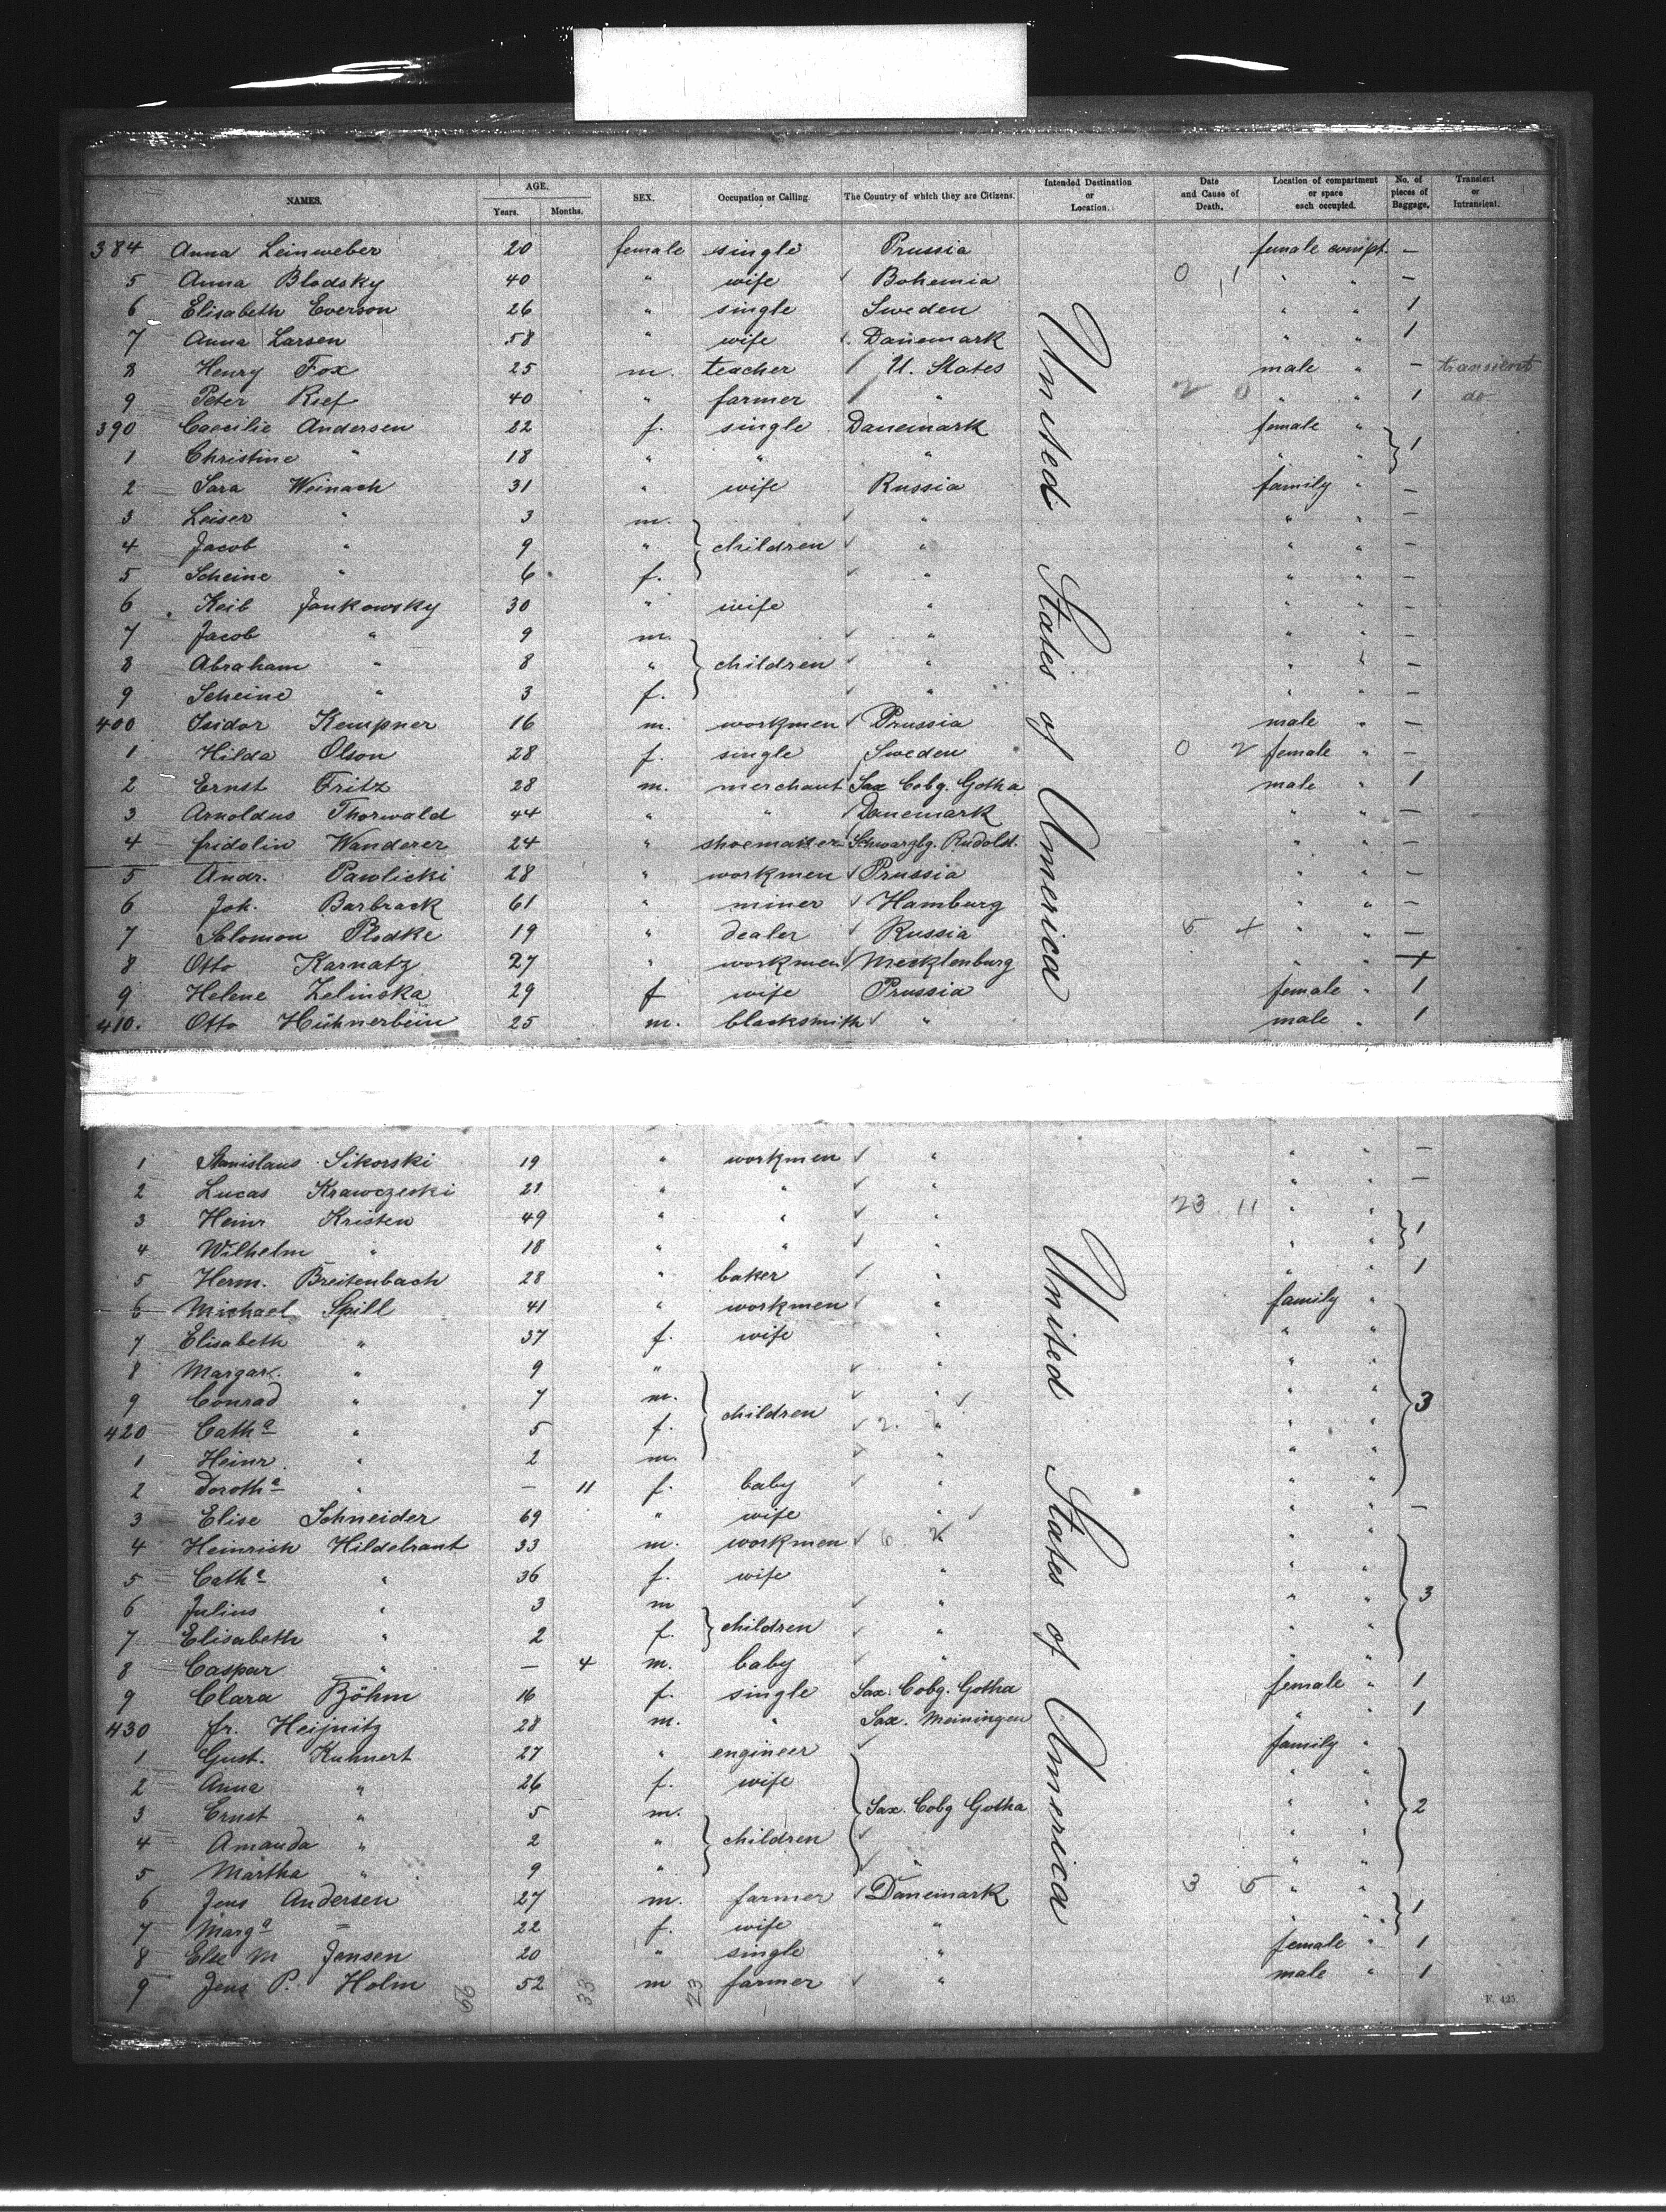 NAMES. AGE. Years. Months. SEX. Occupation or Calling. The Country of which they are Citizens. Intended Destination or Location. Date and Cause of Death. Location of compartment or space each occupied. No. of pieces of Baggage. Transient or Intransient.
384 Anna Leinweber 20 female single Prussia female compt. —
5 Anna Blodsky 40 " wife Bohemia 0 1 " " —
6 Elisabeth Everson 26 " single Sweden " " 1
7 Anna Larsen 58 " wife Danemark " " 1
8 Henry Fox 25 m. teacher U. States male " — transient
9 Peter Rief 40 " farmer " 2 0 " " 1 do
390 Caecilie Andersen 22 f. single Danemark female " 1
1 Christine " 18 " " " " "
2 Sara Weinach 31 " wife Russia family " —
3 Leiser " 3 m. " " " —
4 Jacob " 9 " children " " " —
5 Scheine " 6 f. " " " —
6 Keib Jankowsky 30 " wife " " " —
7 Jacob " 9 m. " " " —
8 Abraham " 8 " children " " " —
9 Scheine " 3 f. " " " —
400 Isidor Kempner 16 m. workmen Prussia male " —
1 Hilda Olson 28 f. single Sweden 0 2 female " —
2 Ernst Fritz 28 m. merchant Sax Cobg. Gotha male " 1
3 Arnoldus Thorwald 44 " " Danemark " " —
4 fridolin Wanderer 24 " shoemaker Schwarzbg. Rudolst. " " —
5 Andr. Pawlicki 28 " workmen Prussia " " —
6 Joh. Barbrack 61 " miner Hamburg " " —
7 Salomon Plodke 19 " dealer Russia 5 4 " " —
8 Otto Karnatz 27 " workmen Mecklenburg " "
9 Helene Zelinska 29 f wife Prussia female " 1
410. Otto Hühnerbein 25 m. blacksmith " male " 1
United States of America
1 Stanislaus Sikorski 19 " workmen " " " —
2 Lucas Krawczeski 21 " " " " " —
3 Heinr Kristen 49 " " " 23 11 " " 1
4 Wilhelm " 18 " " " " "
5 Herm. Breitenbach 28 " baker " " " 1
6 Michael Spill 41 " workmen " family "
7 Elisabeth " 37 f. wife " " "
8 Margar. " 9 " " " "
9 Conrad " 7 m. children " " " 3
420 Catha " 5 f. 2 " " "
1 Heinr. " 2 m. " " "
2 Dorotha " — 11 f. baby " " "
3 Elise Schneider 69 " wife " " " —
4 Heinrich Hildebrant 33 m. workmen 6 " "
5 Catha " 36 f. wife " " "
6 Julius " 3 m " " " 3
7 Elisabeth " 2 f. children " " "
8 Caspar " — 4 m. baby " " "
9 Clara Böhm 16 f. single Sax. Cobg. Gotha female " 1
430 fr. Heijnitz 28 m. " Sax. Meiningen " 1
1 Gust. Kuhnert 27 " engineer family "
2 Anna " 26 f. wife " "
3 Ernst " 5 m. Sax. Cobg Gotha " " 2
4 Amanda " 2 " children " "
5 Martha " 9 " " " "
6 Jens Andersen 27 m. farmer Danemark 3 5 " " 1
7 Marga = 22 f. wife " " "
8 Else M Jensen 20 " single " female " 1
9 Jens P. Holm 52 m farmer " male " 1
United States of America
56 33 23
F. 425.